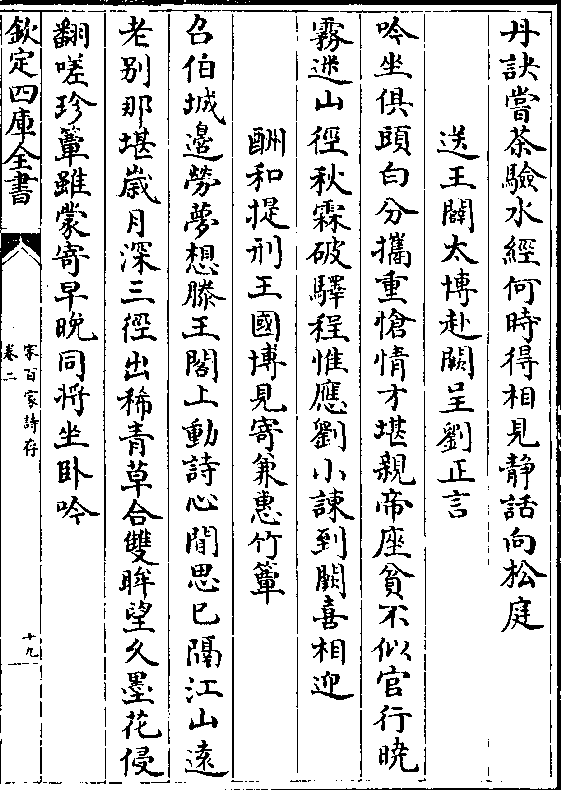 丹訣嘗茶驗水經何時得相見静話向松庭
送王闢太博赴闕呈劉正言
吟坐俱頭白分攜重愴情才堪親帝座貧不似官行曉
霧迷山徑秋霖破驛程惟應劉小諫到闕喜相迎
酬和提刑王國博見寄兼惠竹簟
召伯城邊勞夢想滕王閣上動詩心閒思已隔江山遠
老别那堪歲月深三徑出稀青草合雙眸望久墨花侵
翻嗟珍簟雖蒙寄早晚同將坐卧吟
欽定四庫全書
宋百家詩存
卷二
十九